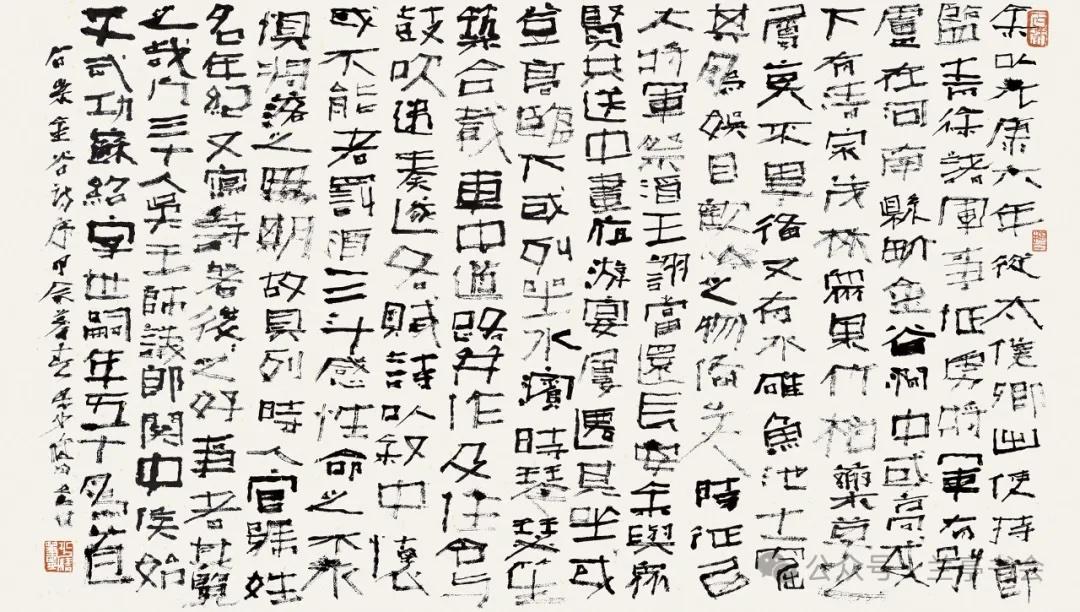 余以元康六年從太僕卿出使持節
監青徐諸軍事征虜將軍有別
廬在河南縣界金谷澗中或高或
下有清泉茂林眾果竹柏藥草之
屬莫不畢備又有水碓魚池土窟
其為娛目歡心之物備矣時征西
大將軍祭酒王詡當還長安余與眾
賢共送中晝夜游宴屢遷其坐或
登高臨下或列坐水濱時琴瑟笙
築合載車中道路并作及住令與
鼓吹遞奏遂各賦詩以敘中懷
或不能者罰酒三斗感性命之不永
懼凋落之無期故具列時人官號姓
名年紀又寫詩箸後之好事者其覽
之哉凡三十人吳王師議郎關中侯始
平武功蘇紹字世嗣年五十為首
石崇金谷詩序甲辰暮春
公众号